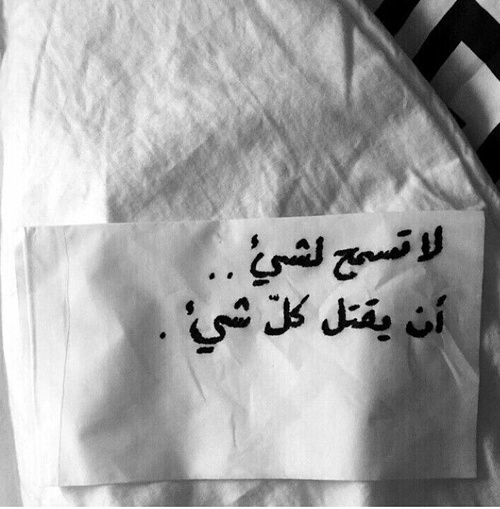 لا تسمح لشيئ ..
أن يقتل كلّ شيئ .